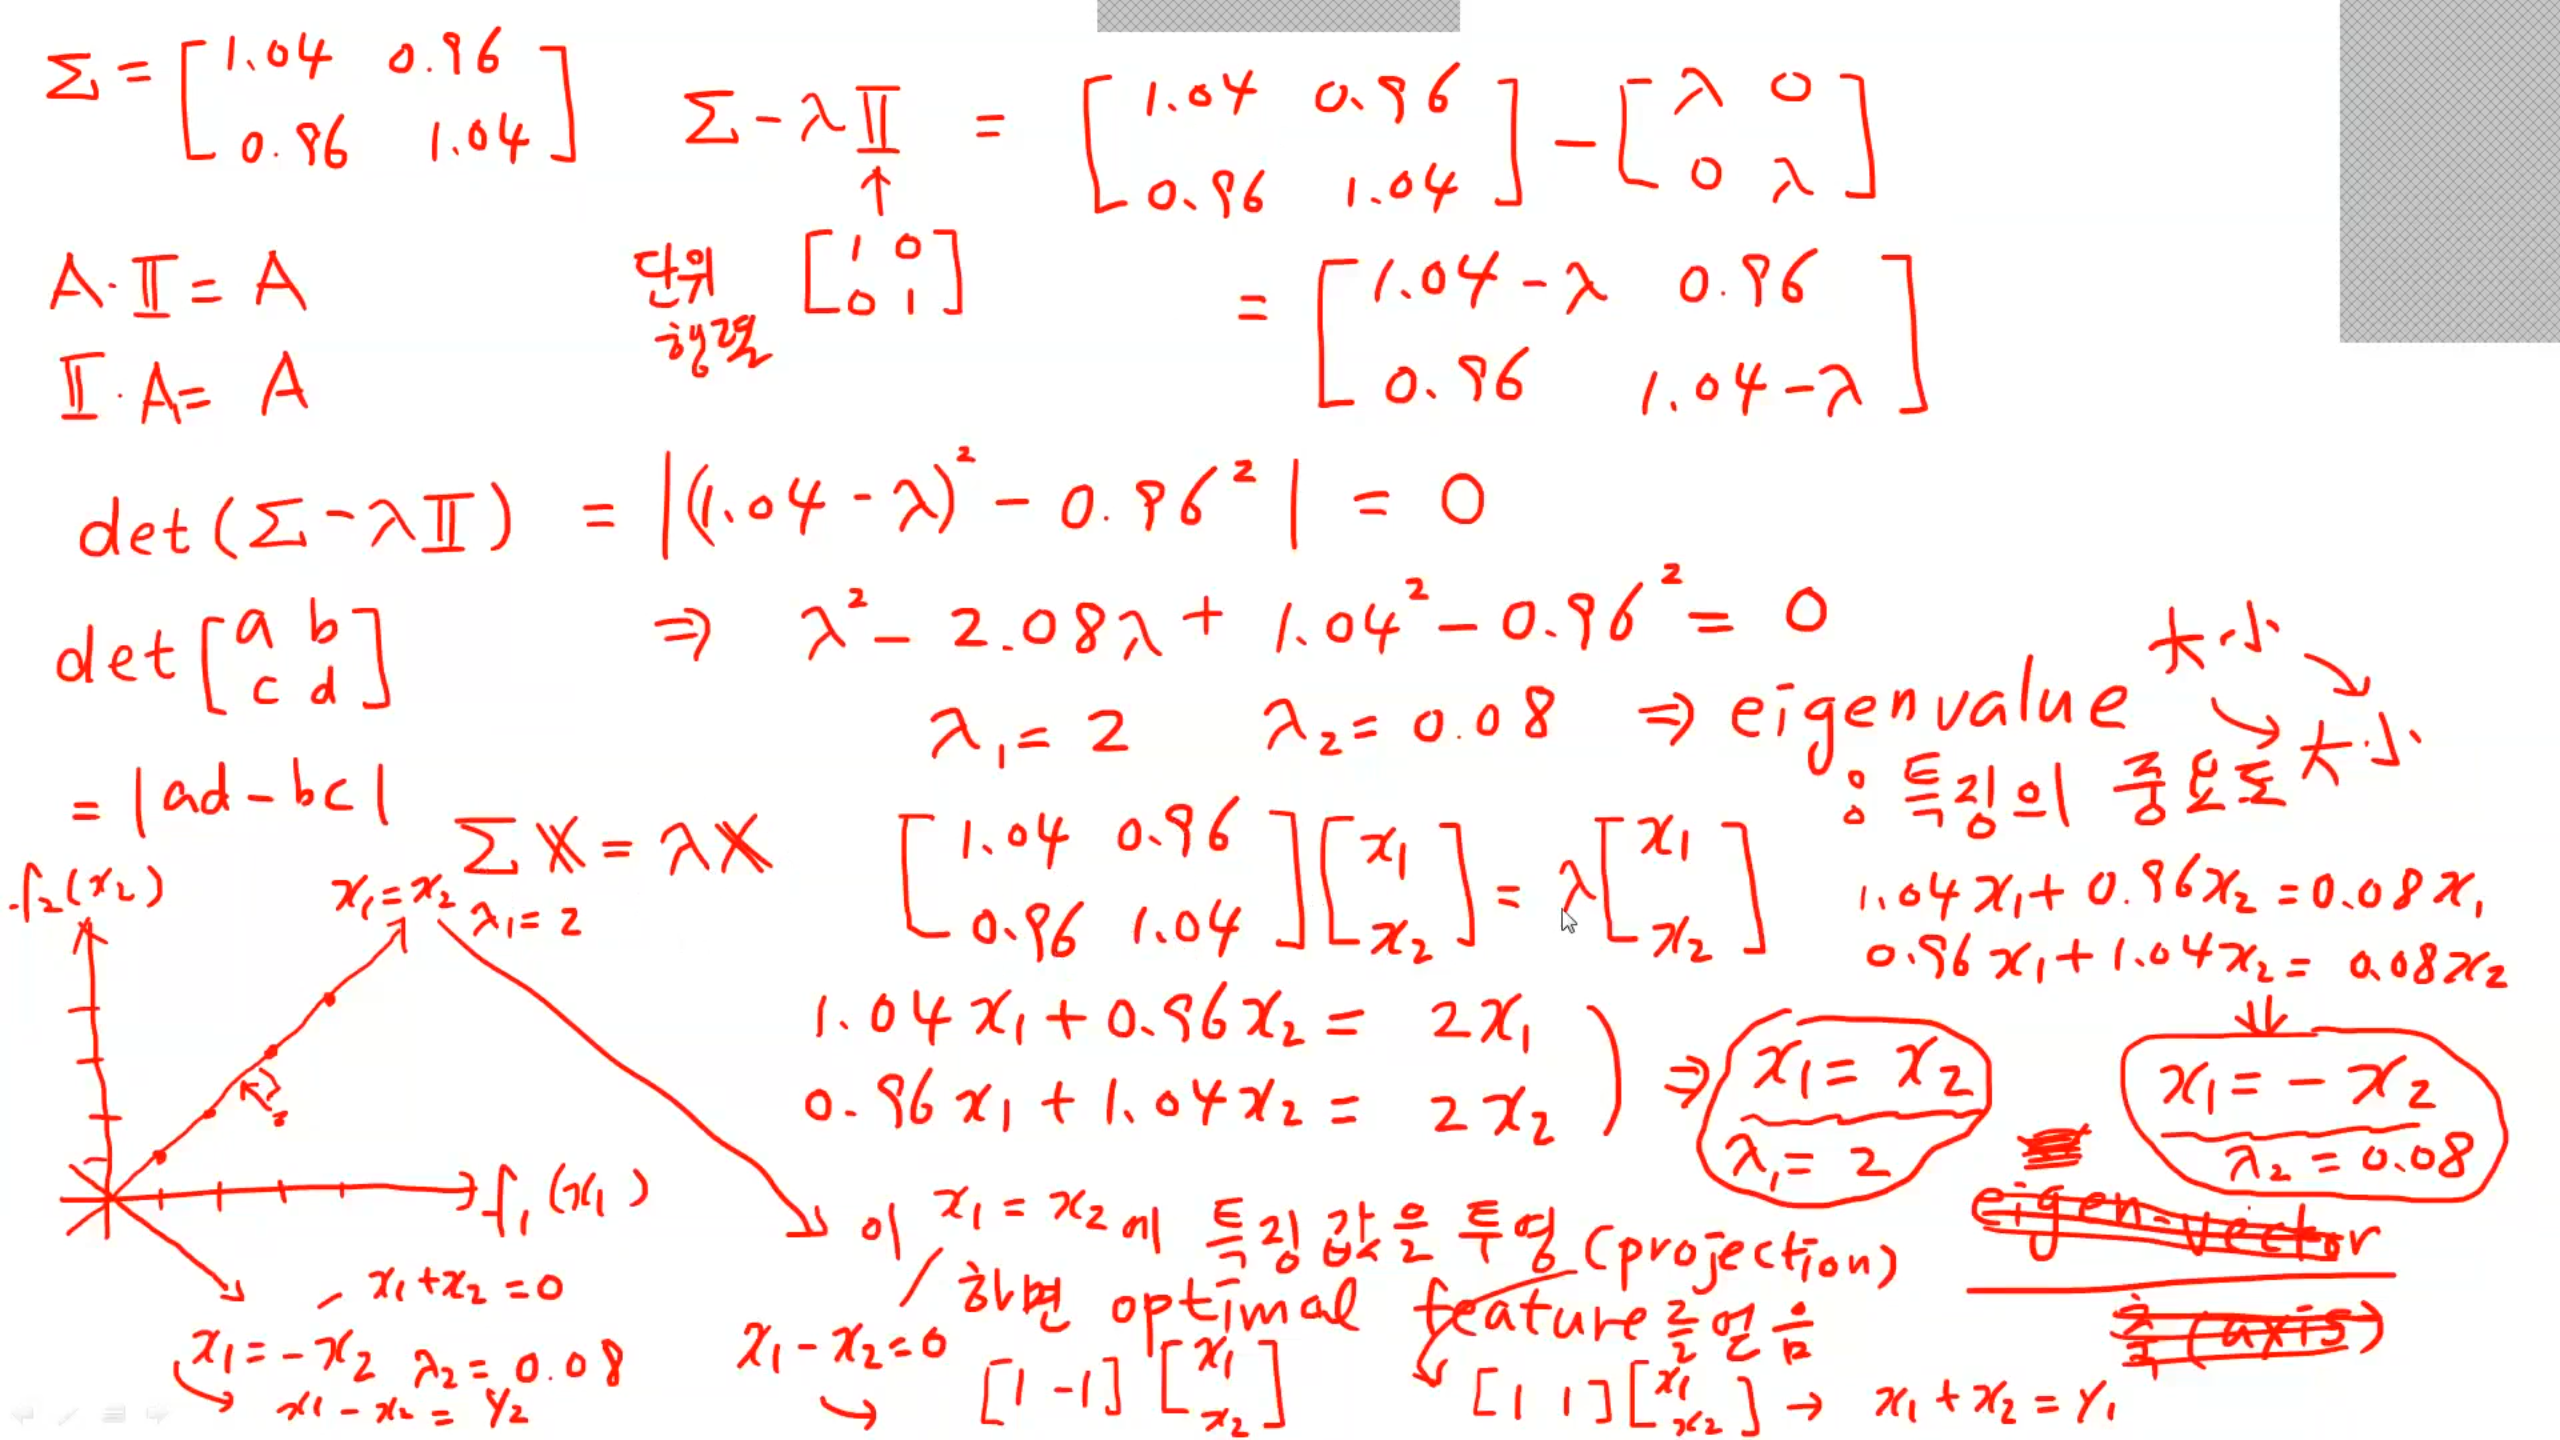 Σ = [1.04 0.96
0.96 1.04]
Σ - λI = [1.04 0.96
0.96 1.04] - [λ 0
0 λ]
↑
단위 행렬 [1 0
0 1]
A·I = A
I·A = A
= [1.04-λ 0.96
0.96 1.04-λ]
det(Σ-λI) = |(1.04-λ)² - 0.96²| = 0
⇒ λ² - 2.08λ + 1.04² - 0.96² = 0
det [a b
c d]
= |ad-bc|
λ₁ = 2 λ₂ = 0.08 ⇒ eigenvalue 大小
: 특징의 중요도 大小
ΣX = λX
[1.04 0.96
0.96 1.04] [x₁
x₂] = λ [x₁
x₂]
1.04x₁ + 0.96x₂ = 0.08x₁
0.96x₁ + 1.04x₂ = 0.08x₂
⇓
x₁ = -x₂
λ₂ = 0.08
1.04x₁ + 0.96x₂ = 2x₁
0.96x₁ + 1.04x₂ = 2x₂
) ⇒ x₁ = x₂
λ₁ = 2
eigen-vector
축 (axis)
f₂(x₂)
x₁ = x₂
λ₁ = 2
f₁(x₁)
x₁+x₂ = 0
x₁ = -x₂ λ₂ = 0.08
x₁ - x₂ = y₂
이 x₁ = x₂에 특징값을 투영 (projection)
하면 optimal feature를 얻음
x₁ - x₂ = 0
→ [1 -1] [x₁
x₂]
[1 1] [x₁
x₂] → x₁ + x₂ = y₁